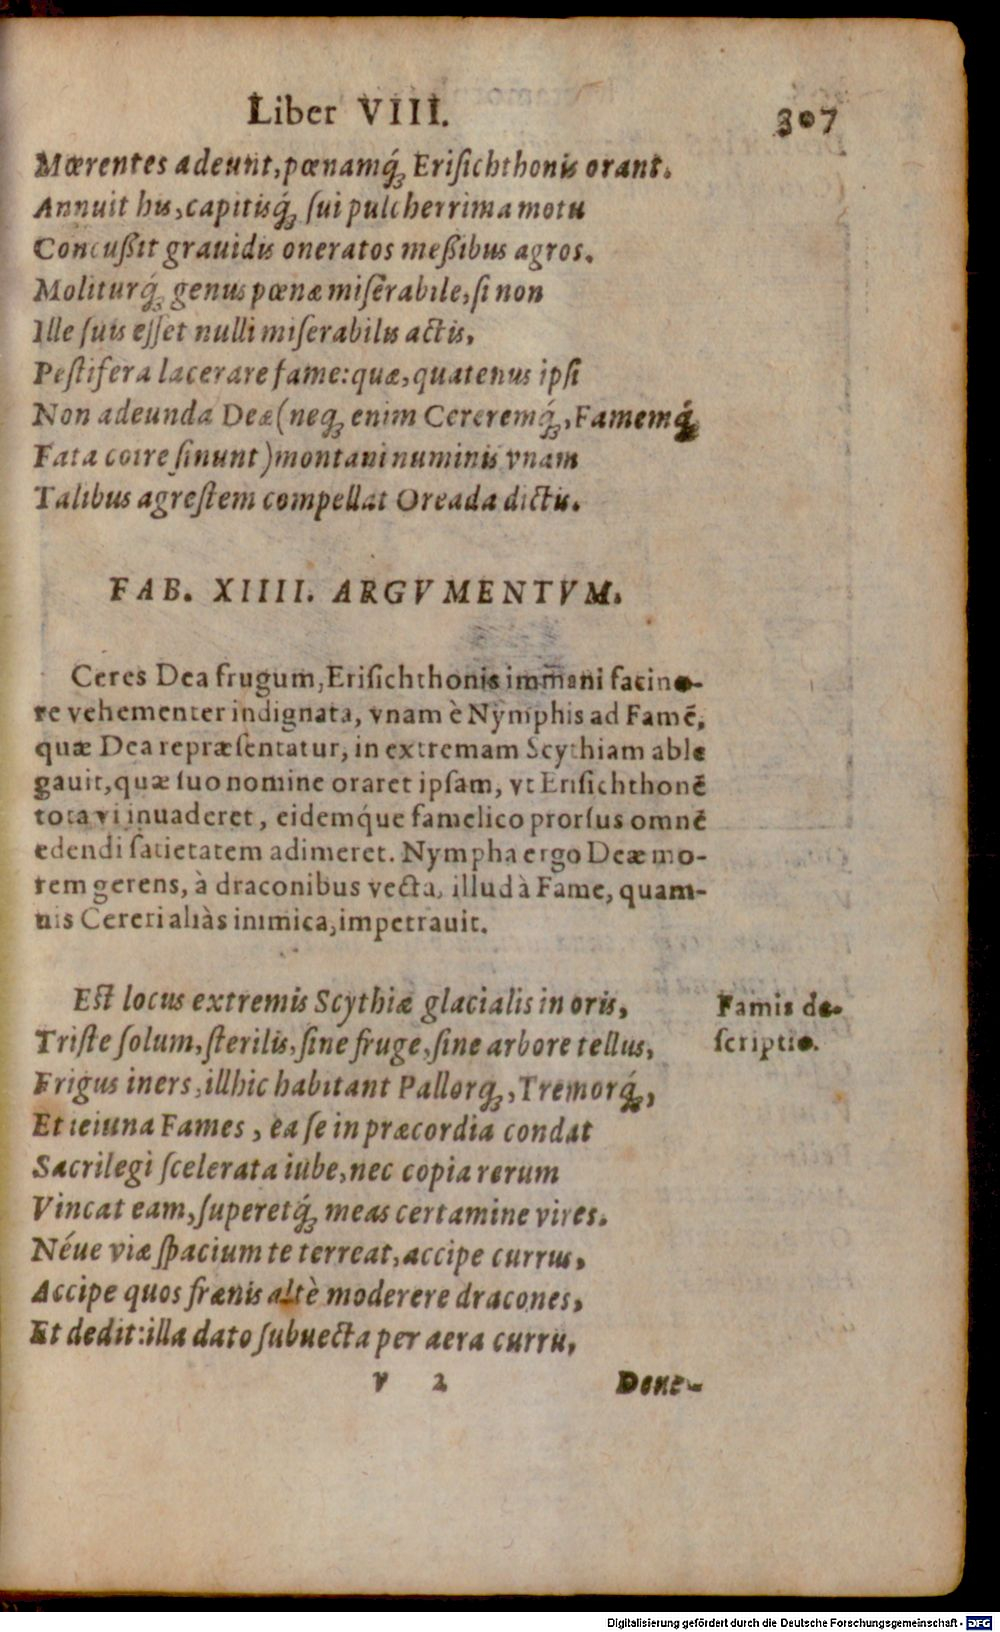 Liber VIII. 307
Mœrentes adeunt, pœnamq́ꝫ Eriſichthonis orant.
Annuit his, capitisq́ꝫ ſui pulcherrima motu
Concußit grauidis oneratos meßibus agros.
Moliturq́ꝫ genus pœnæ miſerabile, ſi non
Ille ſuis eſſet nulli miſerabilis actis,
Peſtifera lacerare fame: quæ, quatenus ipſi
Non adeunda Deæ (neqꝫ enim Cereremq́ꝫ, Famemq́ꝫ
Fata coire ſinunt) montani numinis vnam
Talibus agreſtem compellat Oreada dictis.
FAB. XIIII. ARGVMENTVM.
Ceres Dea frugum, Eriſichthonis immani facino-
re vehementer indignata, vnam è Nymphis ad Famẽ,
quæ Dea repræſentatur, in extremam Scythiam able
gauit, quæ ſuo nomine oraret ipſam, vt Eriſichthonẽ
tota vi inuaderet, eidemq́ue famelico prorſus omnẽ
edendi ſatietatem adimeret. Nympha ergo Deæ mo-
rem gerens, à draconibus vecta, illud à Fame, quam-
uis Cereri aliàs inimica, impetrauit.
Eſt locus extremis Scythiæ glacialis in oris,
Triſte ſolum, ſterilis, ſine fruge, ſine arbore tellus,
Frigus iners, illhic habitant Pallorqꝫ, Tremorq́ꝫ,
Et ieiuna Fames, ea ſe in præcordia condat
Sacrilegi ſcelerata iube, nec copia rerum
Vincat eam, ſuperetq́ꝫ meas certamine vires.
Néue viæ ſpacium te terreat, accipe currus,
Accipe quos frænis altè moderere dracones,
Et dedit: illa dato ſubuecta per aera curru,
Famis de-
ſcriptio.
v 2 Deue-
Digitalisierung gefördert durch die Deutsche Forschungsgemeinschaft - DFG